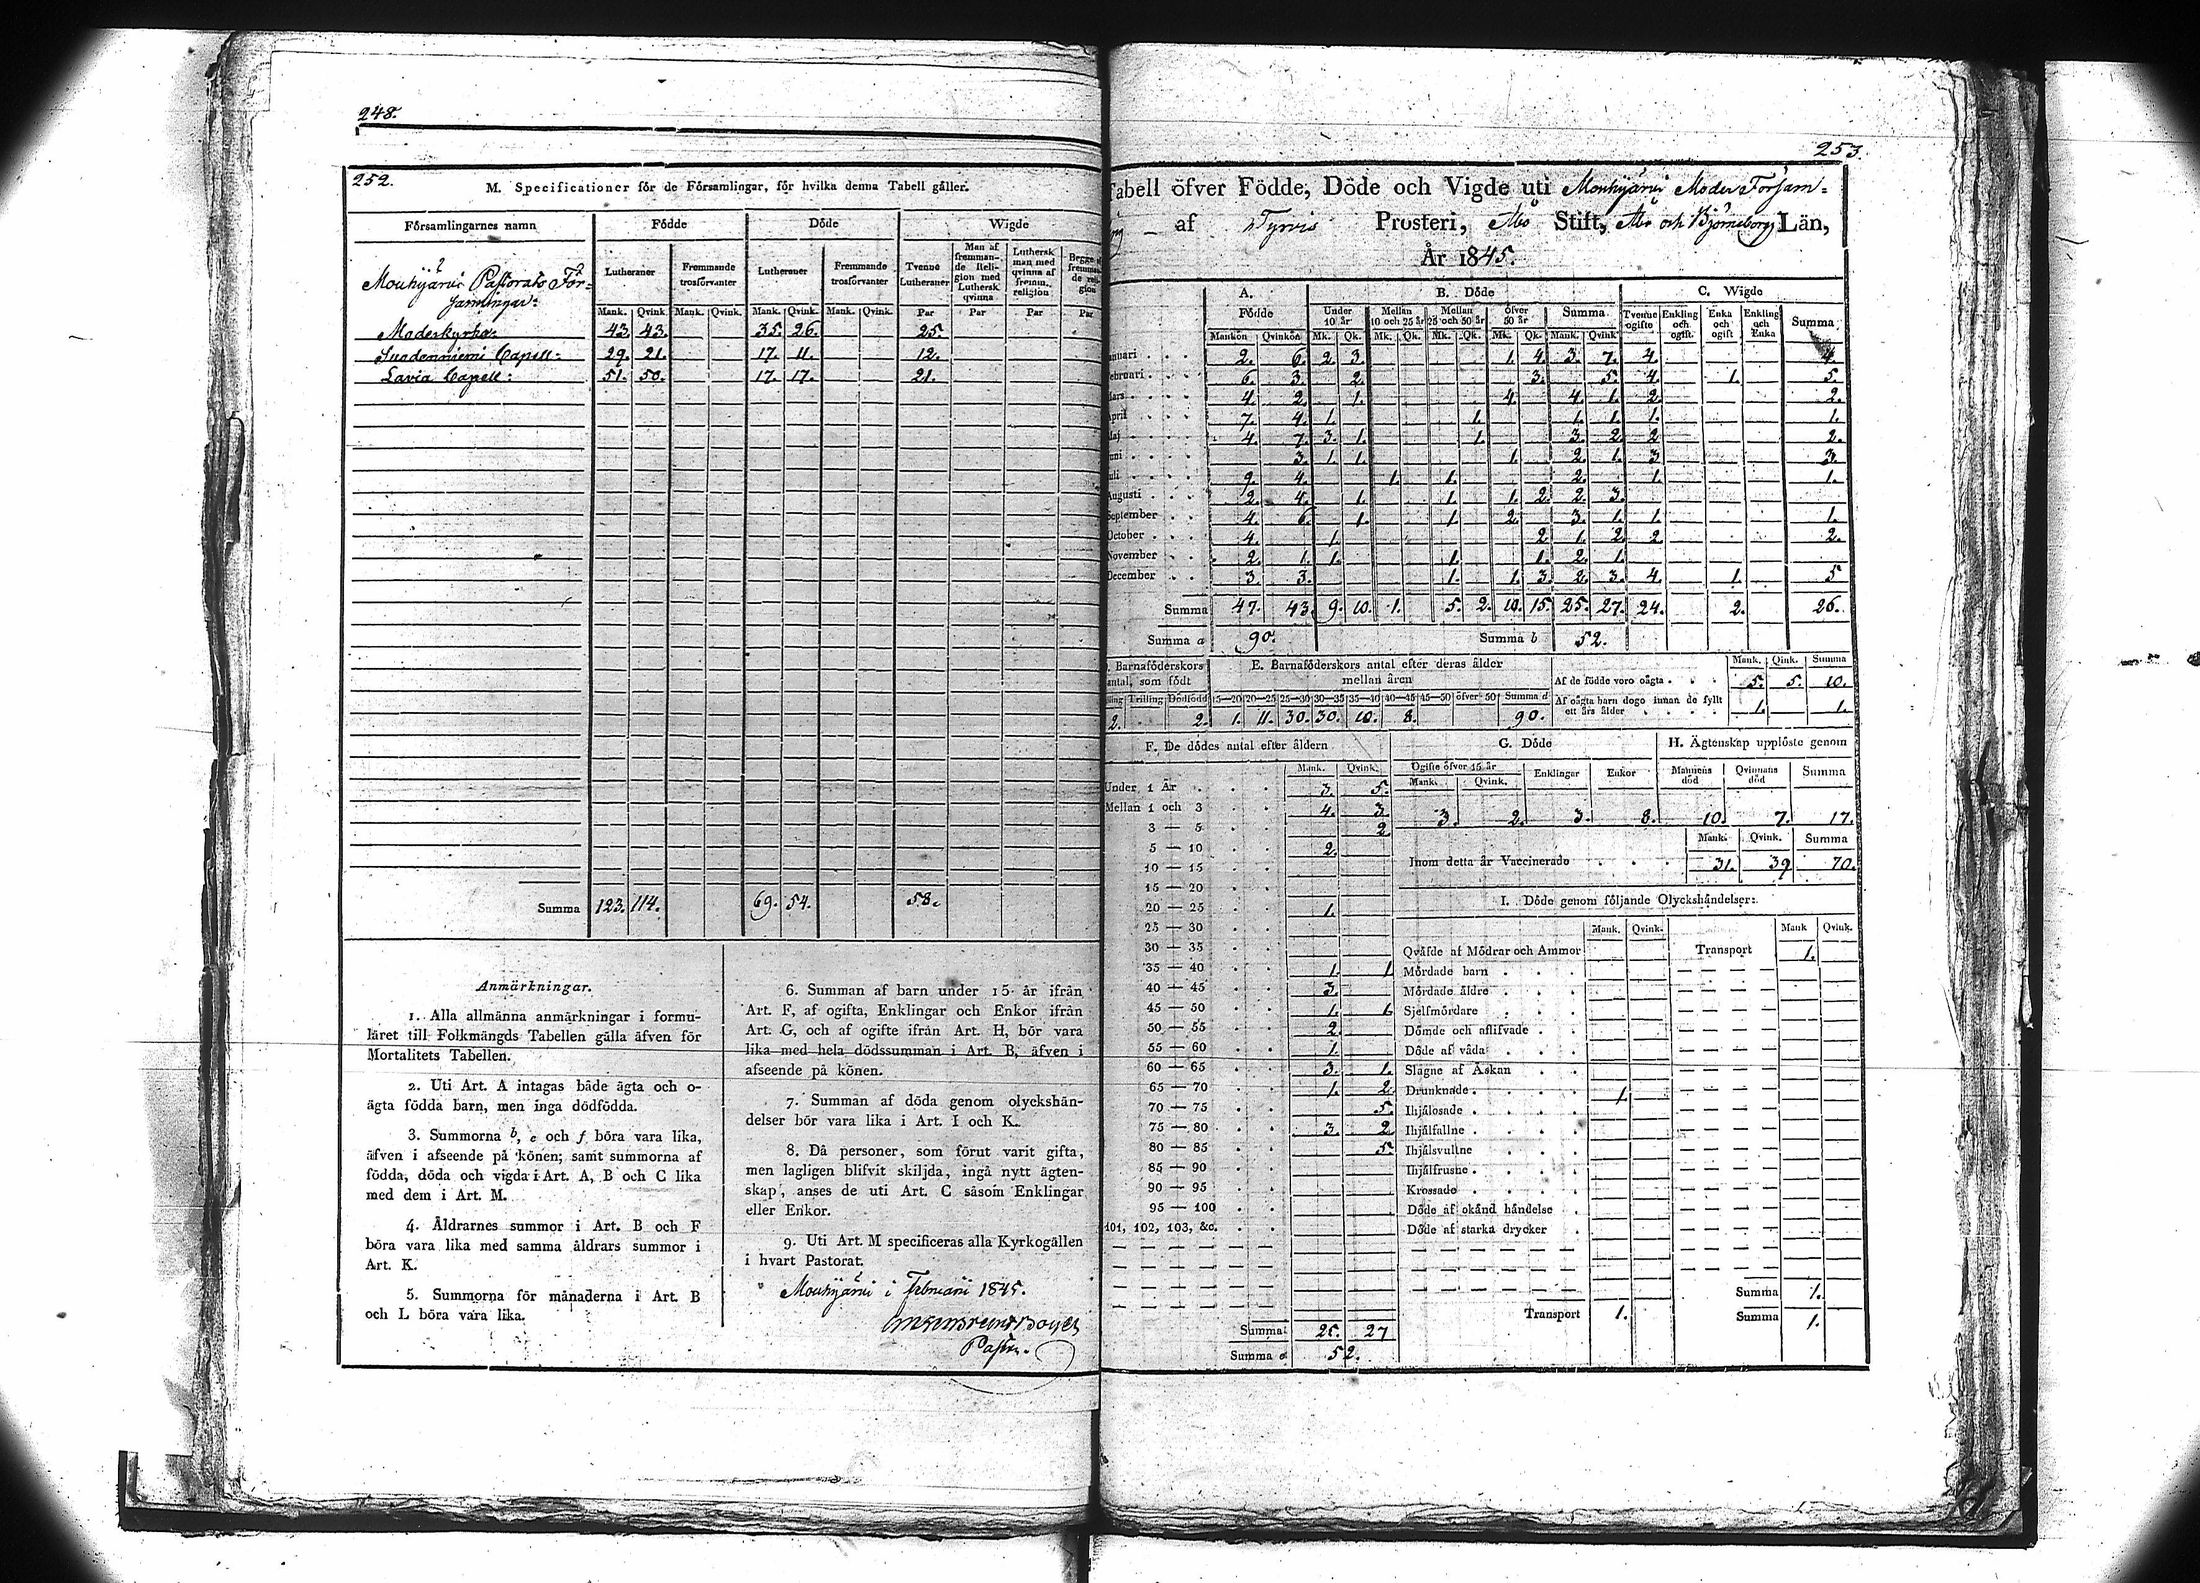 248.
252.
M. Specificationer för de Församlingar, för hvilka denna Tabell gäller.
Församlingarnes namn Födde Döde Wigde
Mouhijärvi Pastorats För-
samlingar:
Lutheraner Fremmande trosförvanter Lutheraner Fremmande trosförvanter Tvenne Lutheraner Man af fremmande Religion med Luthersk qvinna Luthersk man med qvinna af fremm. religion Begge fremman-de reli-gion
Mank. Qvink. Mank. Qvink. Mank. Qvink. Mank. Qvink. Par Par Par Par
Moderkyrka: 43. 43. 35. 26. 25.
Suodenniemi Capell: 29. 21. 17. 11. 12.
Lavia Capell: 51. 50. 17. 17. 21.
Summa 123. 114. 69. 54. 58.
Anmärkningar.
1. Alla allmänna anmärkningar i formu-
läret till Folkmängds Tabellen gälla äfven för
Mortalitets Tabellen.
2. Uti Art. A intagas både ägta och o-
ägta födda barn, men inga dödfödda.
3. Summorna b, e och f böra vara lika,
äfven i afseende på könen; samt summorna af
födda, döda och vigda i Art. A, B och C lika
med dem i Art. M.
4. Åldrarnes summor i Art. B och F
böra vara lika med samma åldrars summor i
Art. K.
5. Summorna för månaderna i Art. B
och L böra vara lika.
6. Summan af barn under 15 år ifrån
Art. F, af ogifta, Enklingar och Enkor ifrån
Art. G, och af ogifte ifrån Art. H, bör vara
lika med hela dödssumman i Art. B, äfven i
afseende på könen.
7. Summan af döda genom olyckshän-
delser bör vara lika i Art. I och K.
8. Då personer, som förut varit gifta,
men lagligen blifvit skiljda, ingå nytt ägten-
skap, anses de uti Art. C såsom Enklingar
eller Enkor.
9. Uti Art. M specificeras alla Kyrkogällen
i hvart Pastorat.
Mouhijärvi i Februarii 1845.
Pastor.
253.
Tabell öfver Födde, Döde och Vigde uti Mouhijärvi Moder Försam=
af Tyrvis Prosteri, Åbo Stift, Åbo och Björneborgs Län,
År 1845.
A. B. Döde C. Wigde
Födde Under 10 år Mellan 10 och 25 år Mellan 25 och 50 år öfver 50 år Summa Tvenne ogifte Enkling och ogift. Enka och ogift Enkling och Enka Summa
Mankön Qvinkön Mk. Qk. Mk. Qk. Mk. Qk. Mk. Qk. Mank. Qvink
anuari 2. 6. 2. 3. 1. 4. 3. 7. 4. 4.
ebruari 6. 3. 2. 3. 5. 4. 1. 5.
ars 4. 2. 1. 4. 4. 1. 2. 2.
April 7. 4. 1. 1. 1. 1. 1. 1.
Maj 4. 7. 3. 1. 1. 3. 2. 2. 2.
uni 3. 1. 1. 1. 2. 1. 3. 3.
uli 9. 4. 1. 1. 2. 1. 1.
Augusti 2. 4. 1. 1. 1. 2. 2. 3.
September 4. 6. 1. 1. 2. 3. 1. 1. 1.
October 4. 1. 2. 1. 2. 2. 2.
November 2. 1. 1. 1. 1. 2. 1.
December 3. 3. 1. 1. 3. 2. 3. 4. 1. 5
Summa 47. 43. 9. 10. 1. 5. 2. 10. 15. 25. 27. 24. 2. 26.
Summa a 90. Summa b 52.
Barnaföderskors antal, som födt E. Barnaföderskors antal efter deras ålder mellan åren Mank. Qink. Summa
Af de födde voro oägta 5. 5. 10.
ling Trilling Dödfödd 15—20 20—25 25—30 30—35 35—40 40—45 45—50 öfver 50 Summa d Af oägta barn dogo innan de fyllt ett års ålder 1. 1.
2. 2. 1. 11. 30. 30. 10. 8. 90.
F. De dödes antal efter åldern
Mank. Qvink.
Under 1 År 3. 5.
Mellan 1 och 3 4. 3
3 — 5 2
5 — 10 2.
10 — 15
15 — 20
20 — 25 1.
25 — 30
30 — 35
35 — 40 1. 1
40 — 45 3.
45 — 50 1. 1.
50 — 55 2.
55 — 60 1.
60 — 65 3. 1.
65 — 70 1. 2
70 — 75 5.
75 — 80 3. 2
80 — 85 5.
85 — 90
90 — 95
95 — 100
101, 102, 103, &c.
Summa 25. 27
Summa e 52.
G. Döde H. Ägtenskap upplöste genom
Ogifte öfver 15 år Enklingar Enkor Mannens död Qvinnans död Summa
Mank. Qvink.
3. 2. 3. 8. 10. 7. 17.
Mank. Qvink. Summa
Inom detta år Vaccinerade 31. 39 70.
I. Döde genom följande Olyckshändelser:
Mank. Qvink. Mank Qvink.
Qväfde af Mödrar och Ammor Transport 1.
Mördade barn
Mördade äldre
Sjelfmördare
Dömde och aflifvade
Döde af våda
Slagne af Åskan
Drunknade 1.
Ihjälosade
Ihjälfallne
Ihjälsvultne
Ihjälfrusne
Krossade
Döde af okänd händelse
Döde af starka drycker
Summa 1.
Transport 1. Summa 1.